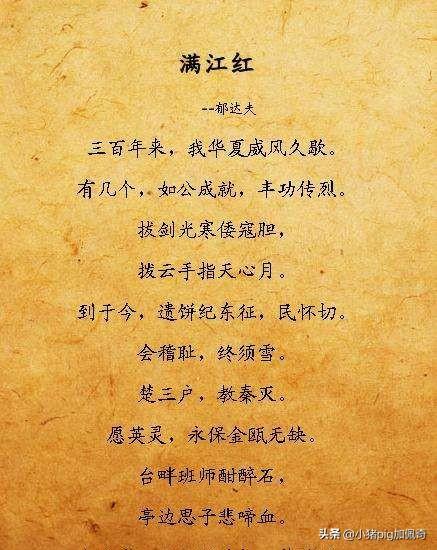 满江红
--郁达夫
三百年来，我华夏威风久歇。
有几个，如公成就，丰功传烈。
拔剑光寒倭寇胆，
拨云手指天心月。
到于今，遗饼纪东征，民怀切。
会稽耻，终须雪。
楚三户，教秦灭。
愿英灵，永保金瓯无缺。
台畔班师酣醉石，
亭边思子悲啼血。
头条 @小猪pig加佩奇